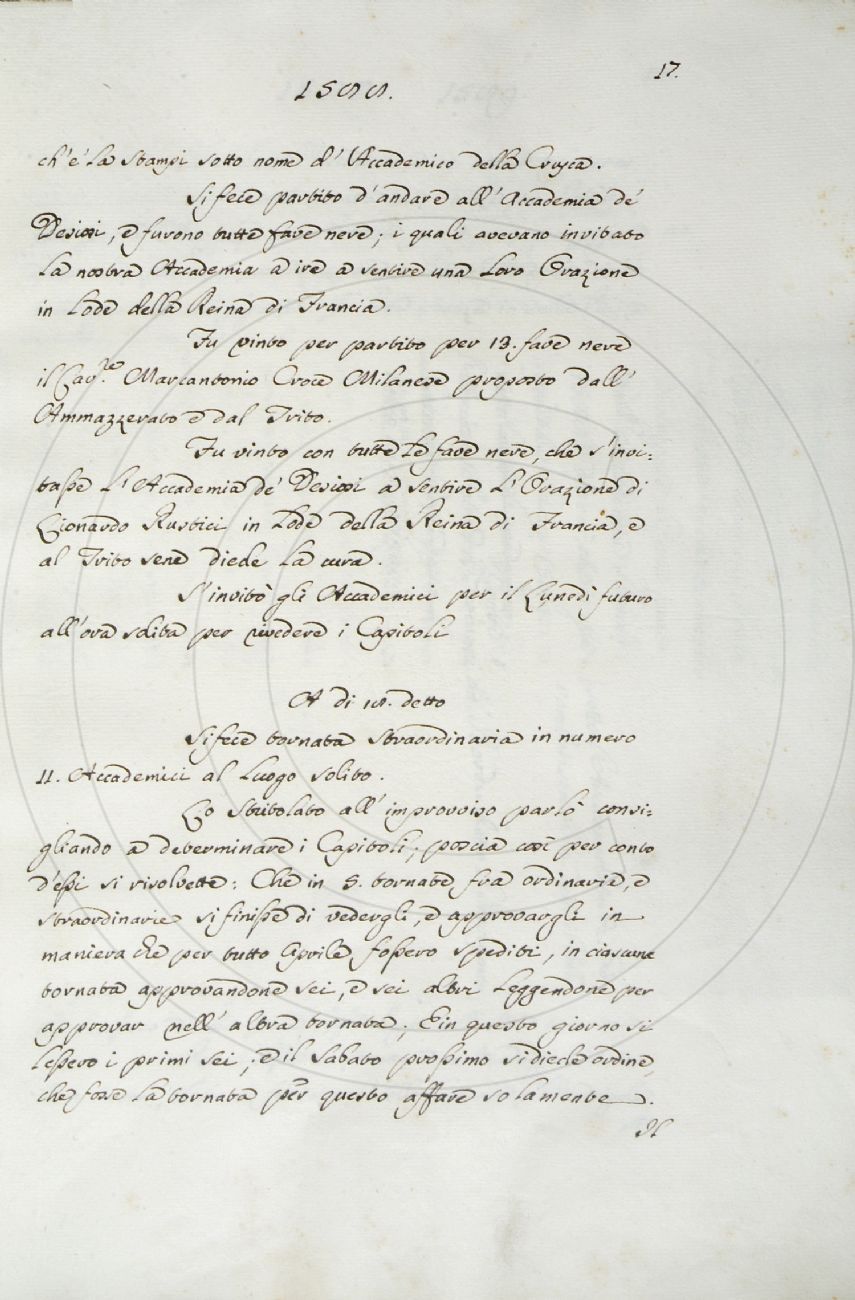 17.
1589.
ch'è la stampi sotto nome d'Accademico della Crusca.
Si fece partito d'andare all'Accademia de'
Desiosi, e furono tutte fave nere; i quali avevano invitato
la nostra Accademia a ire a sentire una loro Orazione
in lode della Reina di Francia.
Fu vinto per partito per 13. fave nere
il Cav.re Marcantonio Croce Milanese proposto dall'
Ammazzerato e dal Trito.
Fu vinto con tutte le fave nere, che s'invi:
tasse l'Accademia de' Desiosi a sentire l'Orazione di
Lionardo Rustici in lode della Reina di Francia, e
al Trito sene diede la cura.
S'invitò gli Accademici per il Lunedì futuro
all'ora solita per rivedere i Capitoli
A di 18. detto
Si fece tornata straordinaria in numero
11. Accademici al luogo solito.
Lo Stritolato all'improvviso parlò consi:
gliando a determinare i Capitoli; poscia così per conto
d'essi si risolvette: Che in 5. tornate fra ordinarie, e
straordinarie si finisse di vedergli, e approvargli in
maniera che per tutto Aprile fossero spediti, in ciascuna
tornata approvandone sei, e sei altri leggendone per
approvar nell'altra tornata; E in questo giorno si
lessero i primi sei; e il Sabato prossimo si diede ordine,
che fosse la tornata per questo affare solamente.
Il